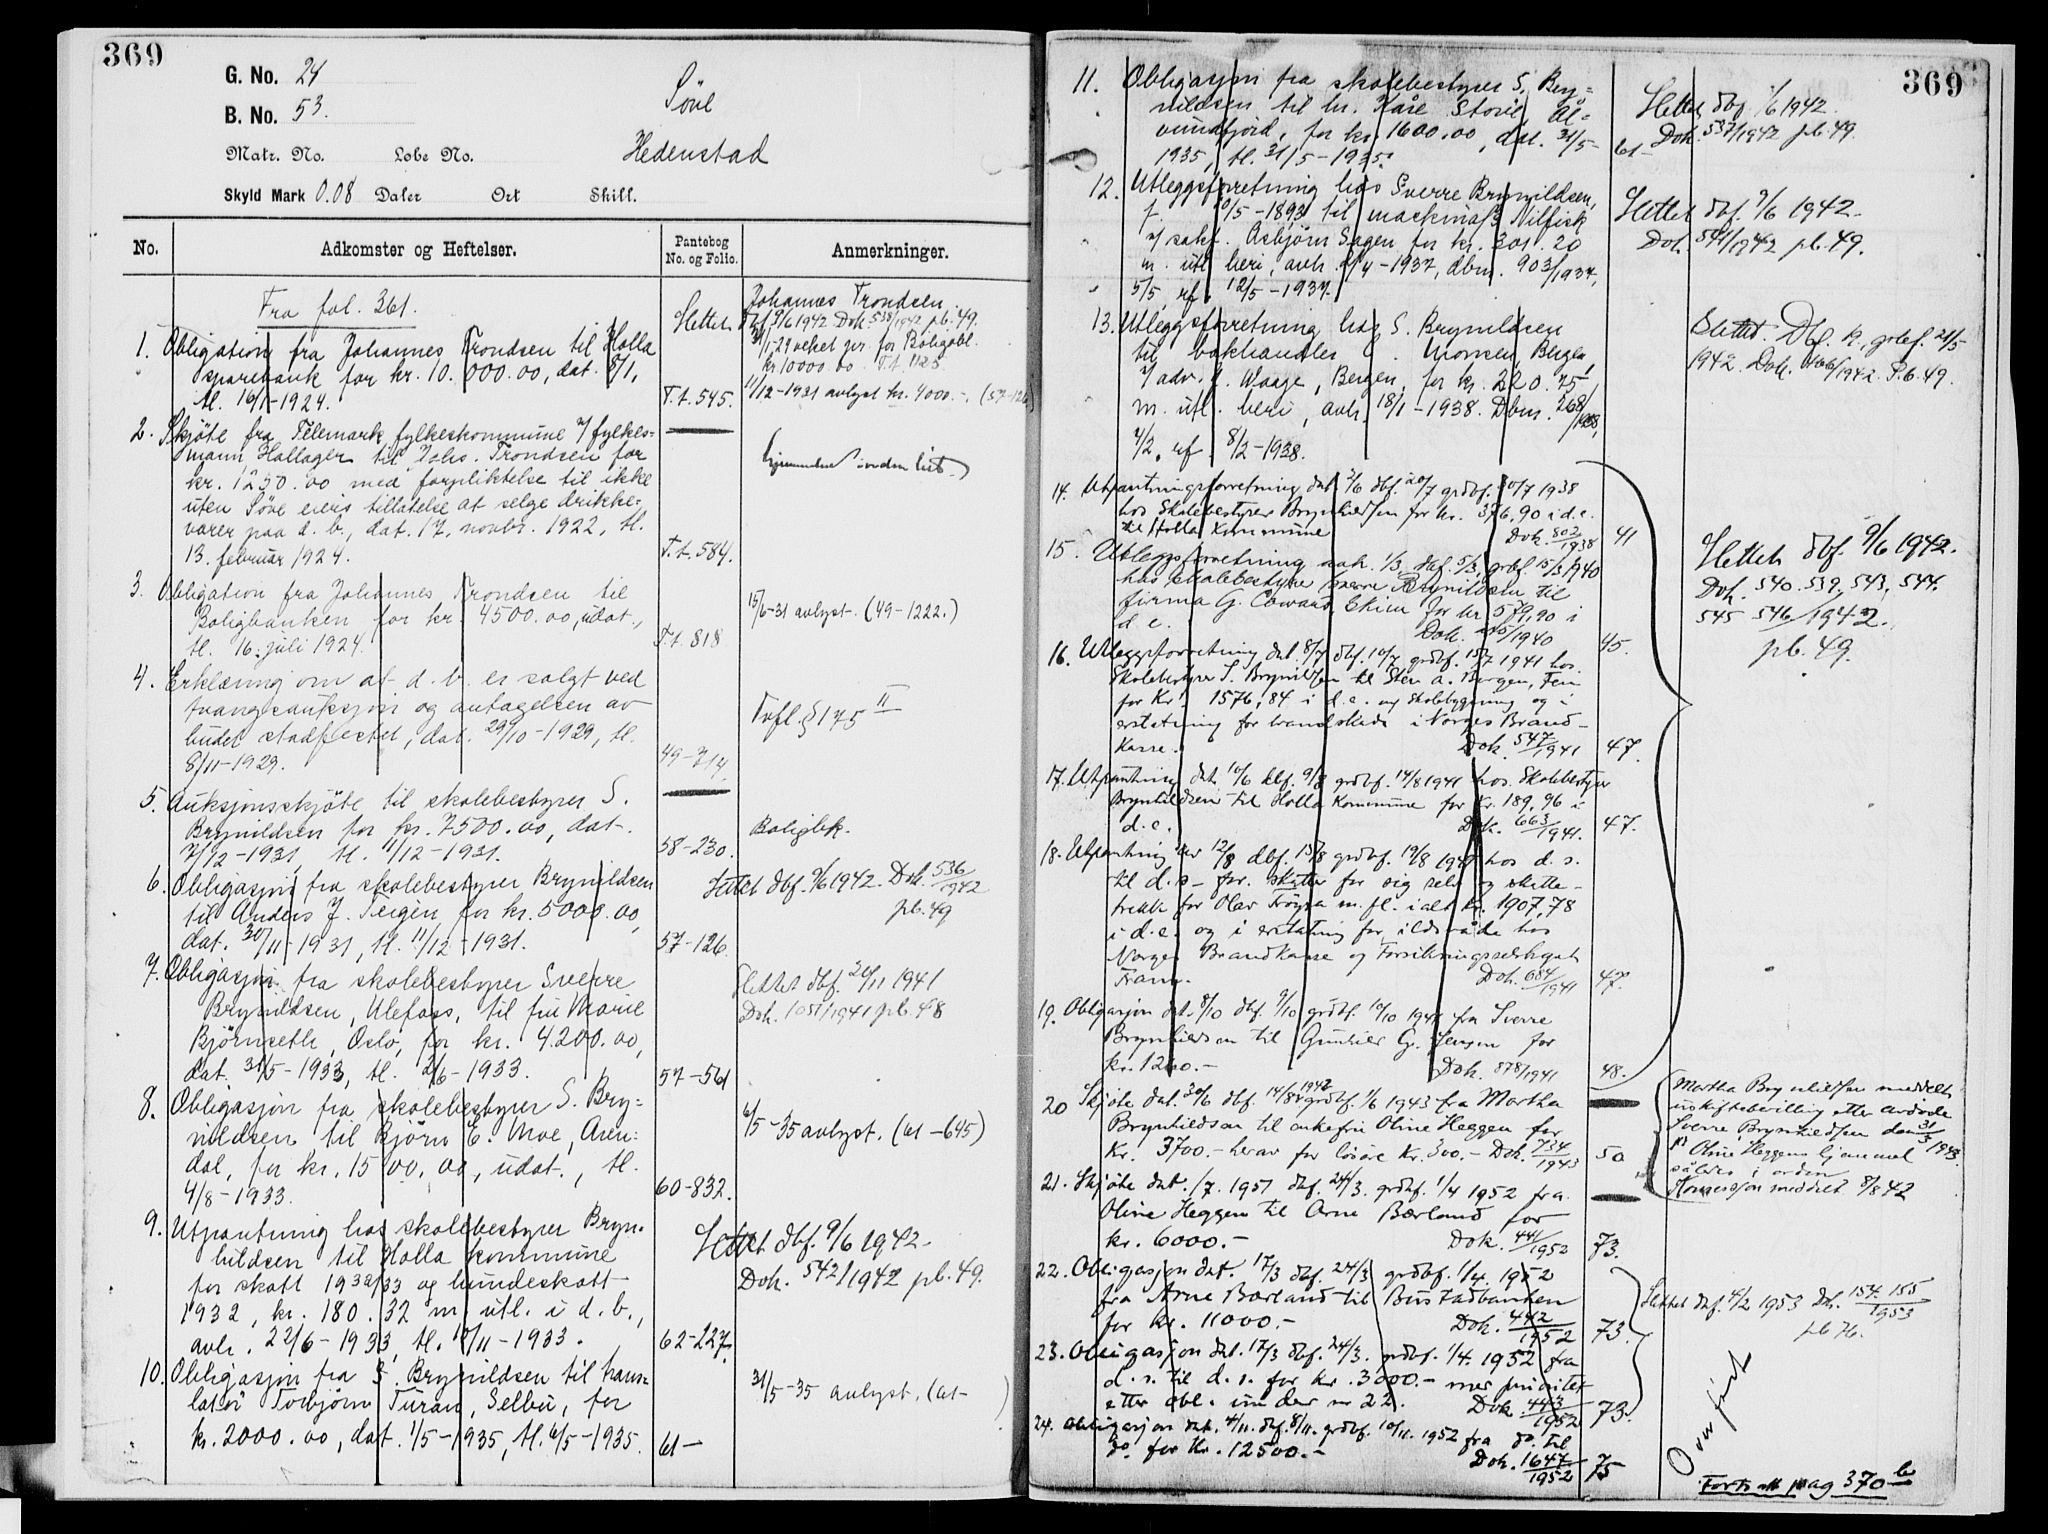 369
G. No. 24
B. No. 53.
Matr. No. Løbe No.
Skyld Mark 0.08 Daler Ort Skill.
Söve
Hedenstad
No. Adkomster og Heftelser. Pantebog No. og Folio. Anmerkninger.
Fra fol. 361.
1. Obligation fra Johannes Trondsen til Holla
sparebank for kr. 10.000.00, dat. 8/1,
tl. 16/1-1924. T.t. 545.
Slettet
Johannes Trondsen
dbf. 9/6 1942 Dok. 538/1942 pb. 49.
1-29 veket pr. for Boligobl.
kr. 10000.00 T.t. 1125
11/12-1931 avlyst kr. 4000.-. (57-126)
2. Skjöte fra Telemark fylkeskommune v/ fylkes=
mann Hallager til Johs. Trondsen for
kr. 1250.00 med forpliktelse til ikke
uten Söve eiers tillatelse at selge drikke=
varer paa d. b., dat. 17. novbr. 1922, tl.
13. februar 1924. T.t. 584.
3. Obligation fra Johannes Trondsen til
Boligbanken for kr. 4500.00, udat.,
tl. 16. juli 1924. T.t. 818
15/6-31 avlyst. (49-1222.)
4. Erklæring om at d. b. er solgt ved
tvangsauksjon og antagelsen av
budet stadfestet, dat. 29/10-1929, tl.
8/11-1929. 49-714.
Tvfl. § 175 II
5. Auksjonsskjöte til skolebestyrer S.
Brynildsen for kr. 7500.00, dat.
7/12-1931, tl. 11/12-1931. 58-230.
Boligbk.
6. Obligasjon fra skolebestyrer Brynildsen
til Anders J. Teigen for kr. 5000.00,
dat. 30/11-1931, tl. 11/12-1931. 57-126
Slettet dbf. 9/6 1942. Dok. 536/1942
pb. 49
7. Obligasjon fra skolebestyrer Sverre
Brynildsen, Ulefoss, til fru Marie
Björnseth, Oslo, for kr. 4.200.00,
dat. 31/5-1933, tl. 2/6-1933. 57-561
Slettet dbf. 20/11 1941
Dok. 1051/1941 pb. 48
8. Obligasjon fra skolebestyrer S. Bry=
nildsen til Björn E. Moe, Aren=
dal, for kr. 1500.00, udat., tl.
4/8-1933. 60-832.
6/5-35 avlyst. (61-645)
9. Utpantning hos skolebestyrer Bryn=
hildsen til Holla kommune
for skatt 1932/33 og hundeskatt
1932, kr. 180.32 m. utl. i d. b.,
avh. 22/6-1933, tl. 10/11-1933. 62-227.
Slettet dbf. 9/6 1942-
Dok. 542/1942 pb. 49.
10. Obligasjon fra S. Brynildsen til hans=
latör Torbjörn Turan, Selbu, for
kr. 2000.00, dat. 1/5-1935, tl. 6/5-1935. 61-
31/5-35 avlyst. (61- )
369
11. Obligasjon fra skolebestyrer S. Bry=
nildsen til hr. Kåre Storli, Al=
vundfjord, for kr. 1600.00, dat. 31/5-
1935, tl. 31/5-1935. 61-
Slettet dbf. 9/6 1942
Dok. 537/1942 pb. 49.
12. Utleggsforretning hos Sverre Brynildsen,
f. /5-1893 til maskinafs Nilfisk
v/ sakf. Asbjörn Sagen for kr. 301.20
m. utl. heri, avh. 2/4-1937, dbm. 903/1937,
5/5, rf. 12/5-1937.
Slettet dbf. 9/6 1942-
Dok. 541/1942 pb. 49.
13. Utleggsforretning hos S. Brynildsen
til bokhandler Monsen, Bergen,
v/ adv. Waage, Bergen, for kr. 220.75
m. utl. heri, avh. 18/1-1938. Dbm. 268/1938,
4/2, rf. 8/2-1938.
Slettet. Dbf. R. grbf. 21/5
1942. Dok. 466/1942 P.b. 49.
14. Utpantningsforretning dat. 2/6 dbf. 20/7 grdbf. 30/7 1938
hos Skolebestyrer Brynhildsen for kr. 376,90 i d.e.
til Holla kommune Dok. 802/1938 41
15. Utleggsforretning avh. 1/3 dbf. 5/3 grbf. 15/3 1940
hos skolebestyrer Sverre Brynildsen til
firma G. Coward Skien for kr 579,90 i
d. e. Dok. 245/1940 45.
16. Utleggsforretning dat. 8/7 dbf. 10/7 grdbf. 15/7 1941 hos
Skolebestyrer S. Brynildsen til Sten A. Bergen,
for kr. 1576,84 i d.e. m/ skolebygning og i
erstatning for brandskade i Norges Brand-
kasse. Dok. 547/1941 47.
17. Utpantning dat. 10/6 dbf. 9/8 grdbf. 14/8 1941 hos Skolebestyrer
Brynhildsen til Holla kommune for kr. 189,96 i
d.e. Dok. 663/1941. 47.
18. Utpantning av 12/8 dbf. 15/8 grdbf. 19/8 1941 hos d. s.
til d.s- for skatter for sig selv og skatte-
trekk for Olav Tröysa m. fl. i alt kr. 1907,78
i d.e. og i erstatning for ildsvåde hos
Norges Brandkasse og Forsikringsselskapet
Fram. Dok. 684/1941 47.
19. Obligasjon dat. 8/10 dbf. 9/10 grdbf. 10/10 1941 fra Sverre
Brynhildsen til Gunhild G. Jensen for
kr. 1260.- Dok. 878/1941 48.
Slettet dbf. 9/6 1942.
Dok. 540. 539, 543, 544.
545 546/1942.
pb. 49.
20 Skjöte dat. 30/6 dbf. 14/8 1942 grdbf. 1/6 1943 fra Martha
Brynhildsen til enkefru Oline Heggen for
kr. 3700.- herav for lösöre kr. 300.- Dok. 734/1943 50
Martha Brynhildsen meddelt
uskiftebevilling etter avdöde
Sverre Brynhildsen den 31/3 1943.
Oline Heggens hjemmel
således i orden
Konsesjon meddelt 8/8 42
21. Skjöte dat. 1/7. 1951 dbf. 24/3. grdbf. 1/4 1952 fra
Oline Heggen til Arne Bærland for
kr. 6000.- Dok. 441/1952 73.
22. Obligasjon dat. 17/3 dbf. 24/3 grdbf. 1/4. 1952
fra Arne Bærland til Bustadbanken
for kr. 11000.- Dok. 442/1952 73.
23. Obligasjon dat. 17/3 dbf. 24/3. grdbf. 1/4. 1952 fra
d. s. til d. s. for kr. 3000.- med prioritet
etter obl. under nr 22. Dok. 443/1952 73.
Slettet dbf. 4/2 1953 Dok. 154. 155/1953
pb 76.
24. Obligasjon dat. 4/11. dbf. 8/11. grdbf. 10/11. 1952 fra do. til
do. for kr. 12500.- Dok. 1647/1952 75
Overfört
Forts. pag 370 b